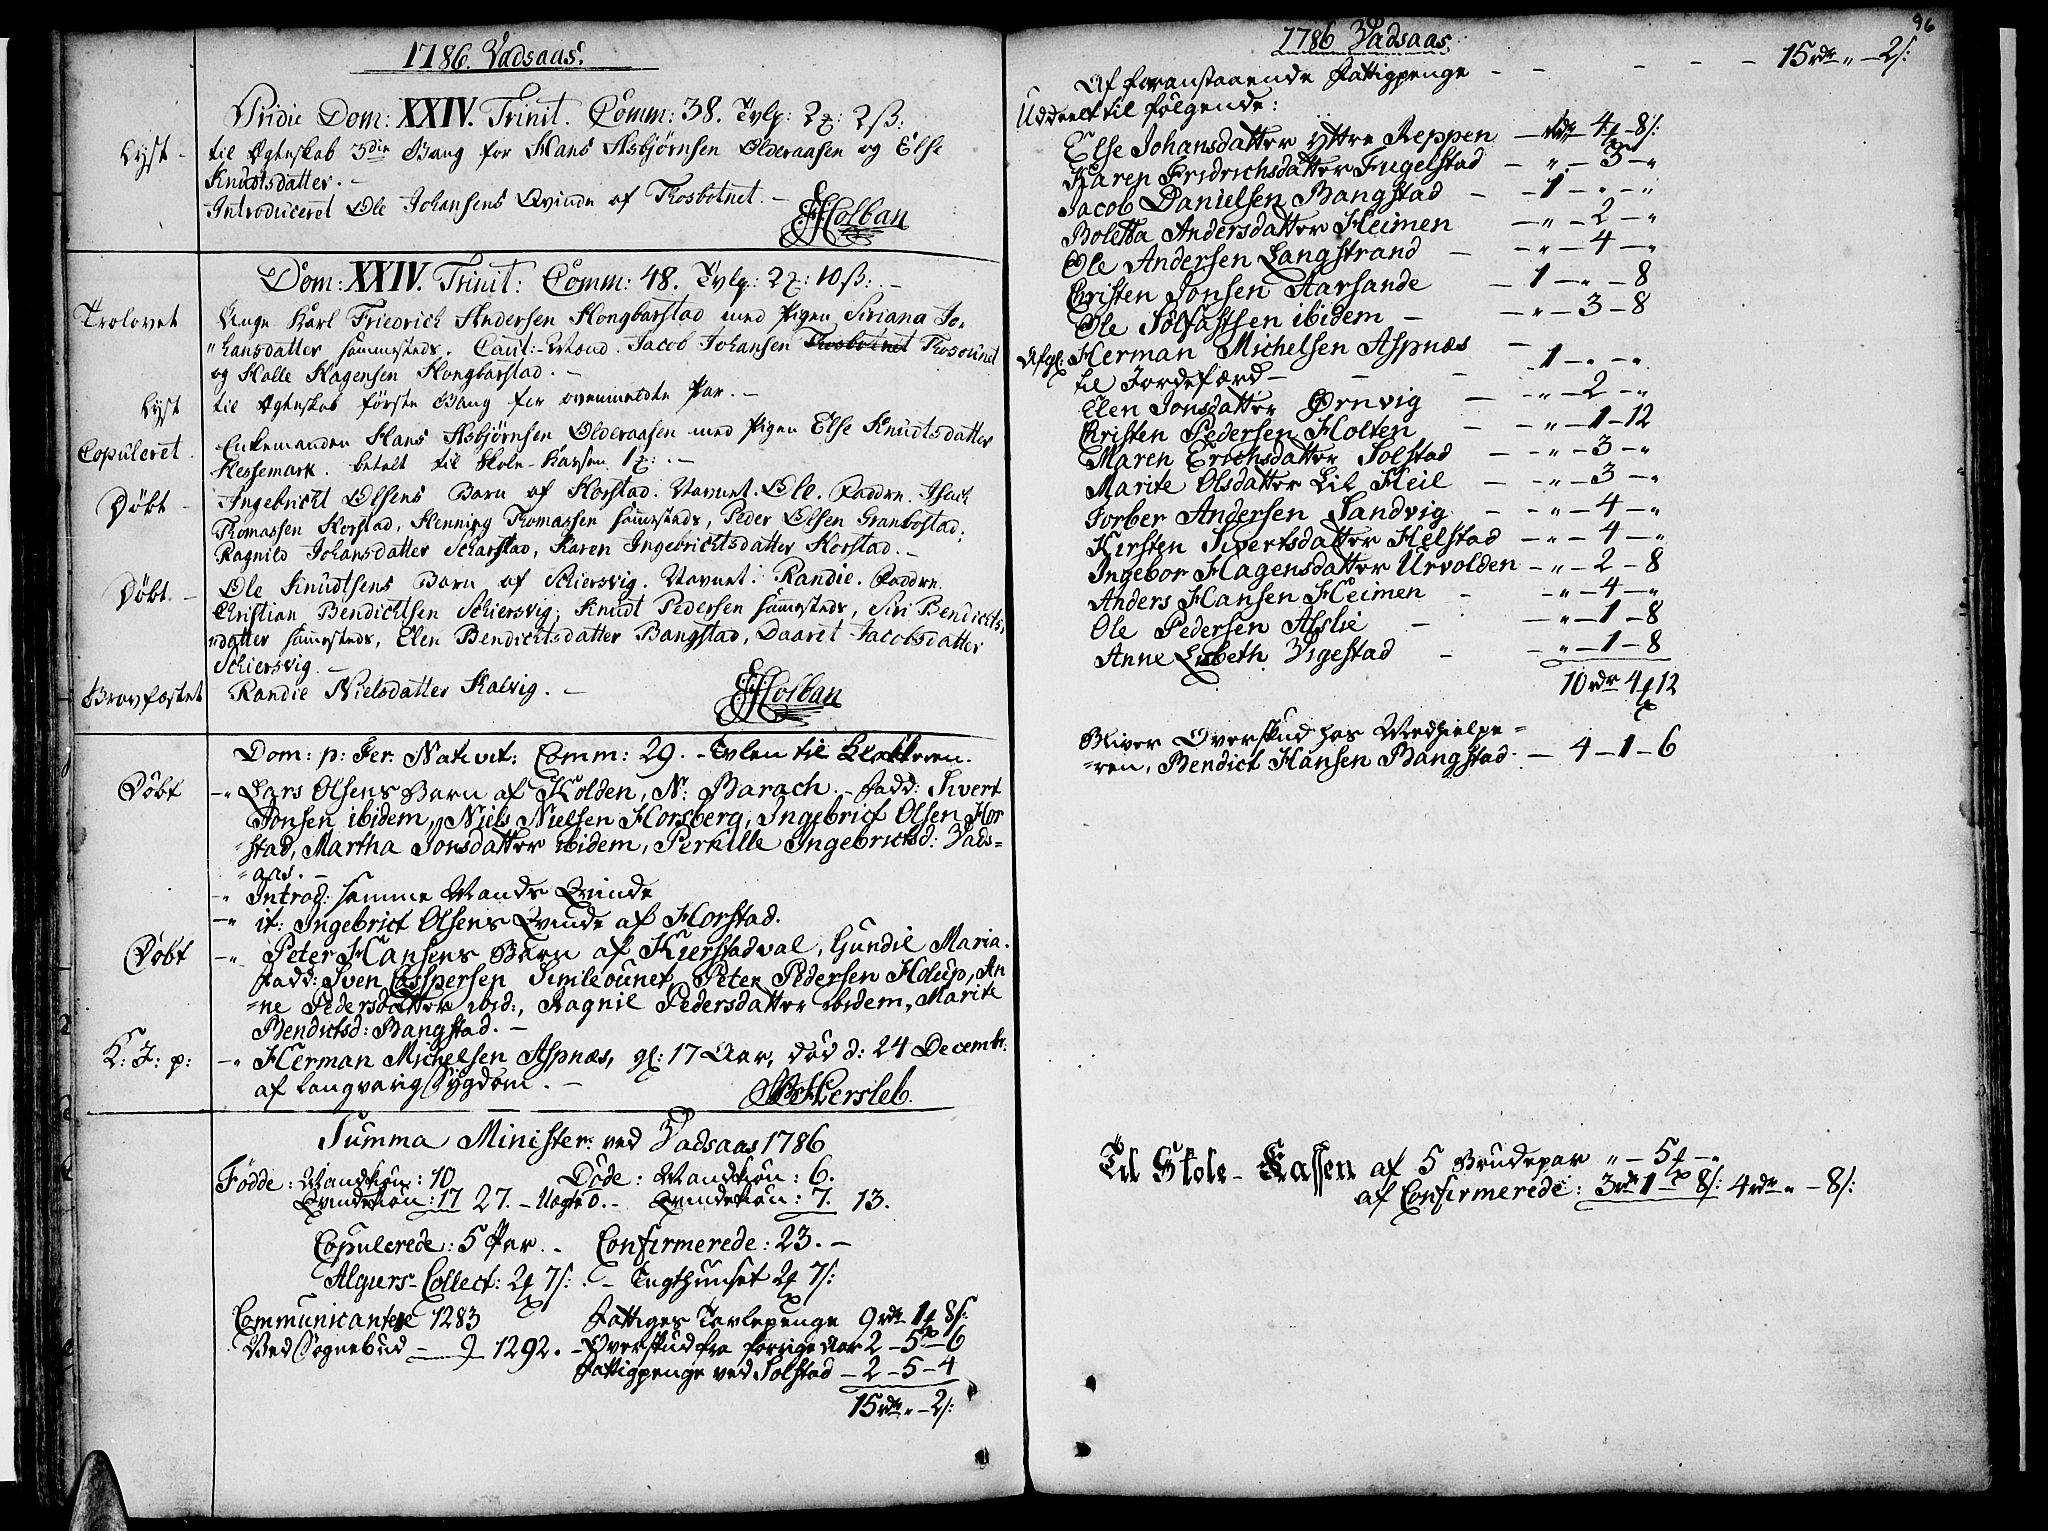 1786. Vadsaas.
Pridie Dom: XXIV. Trinit. Comm: 38. Tvlp: 2 : 2ß:
Lyst -
til Ægteskab 3die Gang for Hans Asbjørnsen Olderaasen og Else
Knudtsdatter. -
Introduceret Ole Johansens Qvinde af Trosbotnet. -
Holban
Dom: XXIV. Trinit: Comm: 48. Tvlp: 2 : 10ß: -
Trolovet
Unge Karl Friedrich Andersen Kongbarstad med Pigen Siriana Jo-
"hansdatter sammesteds. Caut:-Mænd. Jacob Johansen Trosbotnet Trosounet
og Halle Hagensen Kongbarstad. -
Lyst
til Ægteskab første Gang for ovenmeldte Par. -
Copuleret.
Enkemanden Hans Asbjørnsen Olderaasen med Pigen Else Knudtsdatter
Hessemark. betalt til Skole-Kassen 1 : -
Döbt -
Ingebricht Olsens Barn af Horstad. Navnet. Ole. Faddre. Isach
Thomassen Horstad, Henning Thomassen sammesteds, Peder Olsen Granbostad,
Ragnild Johansdatter Scharstad, Karen Ingebrichtsdatter Horstad. -
Döbt. -
Ole Knudtsens Barn af Schiersvig. Navnet. Randie. Faddre.
Christian Bendichtsen Schiersvig, Knudt Pedersen sammesteds, Siri Bendichts-
"datter sammesteds, Elen Bendichtsdatter Bangstad, Daaret Jacobsdatter
Schiersvig. -
Gravfæstet
Randie Nielsdatter Kalvig. -
Holban
Dom: p: Fer: Nativit: Comm: 29. - Tvlen til Klokkeren.
Döbt
-" Lars Olsens Barn af Holden, N: Barach. - Fadd: Sivert
Jonsen ibidem, Niels Nielsen Horsberg, Ingebrict Olsen Hor
stad, Martha Jonsdatter ibidem, Pernille Ingebrictsd: Vads-
=aas. -
-" Introd: samme Mands Qvinde
-" it: Ingebrict Olsens Qvinde af Horstad.
Döbt
-" Peter Hansens Barn af Kierstadval, Gundil Maria.
Fadd: Sven Casspersen Simleounet, Peter Pedersen Holup, An
=ne Pedersdatter ibid:, Ragnil Pedersdatter ibidem, Marite
Bendictsd: Bangstad. -
K: J: p:
-" Herman Michelsen Aspnæs, gl: 17 Aar, död d: 24 Decembr:
af langvarig Sygdom. -
Hersleb.
Summa Minister: ved Vadsaas 1786
Födde: Mandkiön: 10 Döde: Mandkiön: 6.
Qvindekiön: 17 27. - Uægte 0. - Qvindekiön: 7. 13.
Copulerede: 5 Par. - Confirmerede: 23. -
Algiers-Collect: 2 7/: - Tugthuuset 2 7/:
Communicantere 1283 Fattiges Tavlepenge 9rdr 1 8/:
Ved Sognebud - 9 1292. - Overskud fra forrige Aar 2 - 5 - 6
Fattigpenge ved Solstad - 2 - 5 - 4
15rdr " - 2/:
96
1786 Vadsaas.
Af foranstaaende Fattigpenge - - - - - 15rdr " - 2/:
Uddeelt til følgende:
Else Johansdatter Yttre Reppen - rdr 4 - 8/:
Karen Fridrichsdatter Fugelstad - " - 3 - "
Jacob Danielsen Bangstad - - 1 - " - "
Boletta Andersdatter Heimen - " - 2 - "
Ole Andersen Langstrand - - " - 4 - "
Christen Jonsen Aarsande - 1 - " - 8
Ole Solfastsen ibidem - - " - 3 - 8
Afgl: Herman Michelsen Aspnæs -
til Jordefærd - - - 1 - " - "
Elen Jonsdatter Ørnvig - - " - 2 - "
Christen Pedersen Holten - - " - 1 - 12
Maren Erichsdatter Solstad - - " - 3 - "
Marite Olsdatter Lil Heil - - " - 3 - "
Torber Andersen Sandvig - - " - 4 - "
Kirsten Sivertsdatter Helstad - " - 4 - "
Ingebor Hagensdatter Urvolden - " - 2 - 8
Anders Hansen Heimen - - " - 4 - "
Ole Pedersen Aslie - - " - 1 - 8
Anne Lisbeth Vigestad - - " - 1 - 8
10rdr 4 12
Bliver Overskud hos Medhielpe=
=ren, Bendict Hansen Bangstad - 4 - 1 - 6
Til Skole-Kassen af 5 Brudepar " - 5 - "
af Confirmerede: 3rdr 1 - 8/: 4rdr " - 8/: